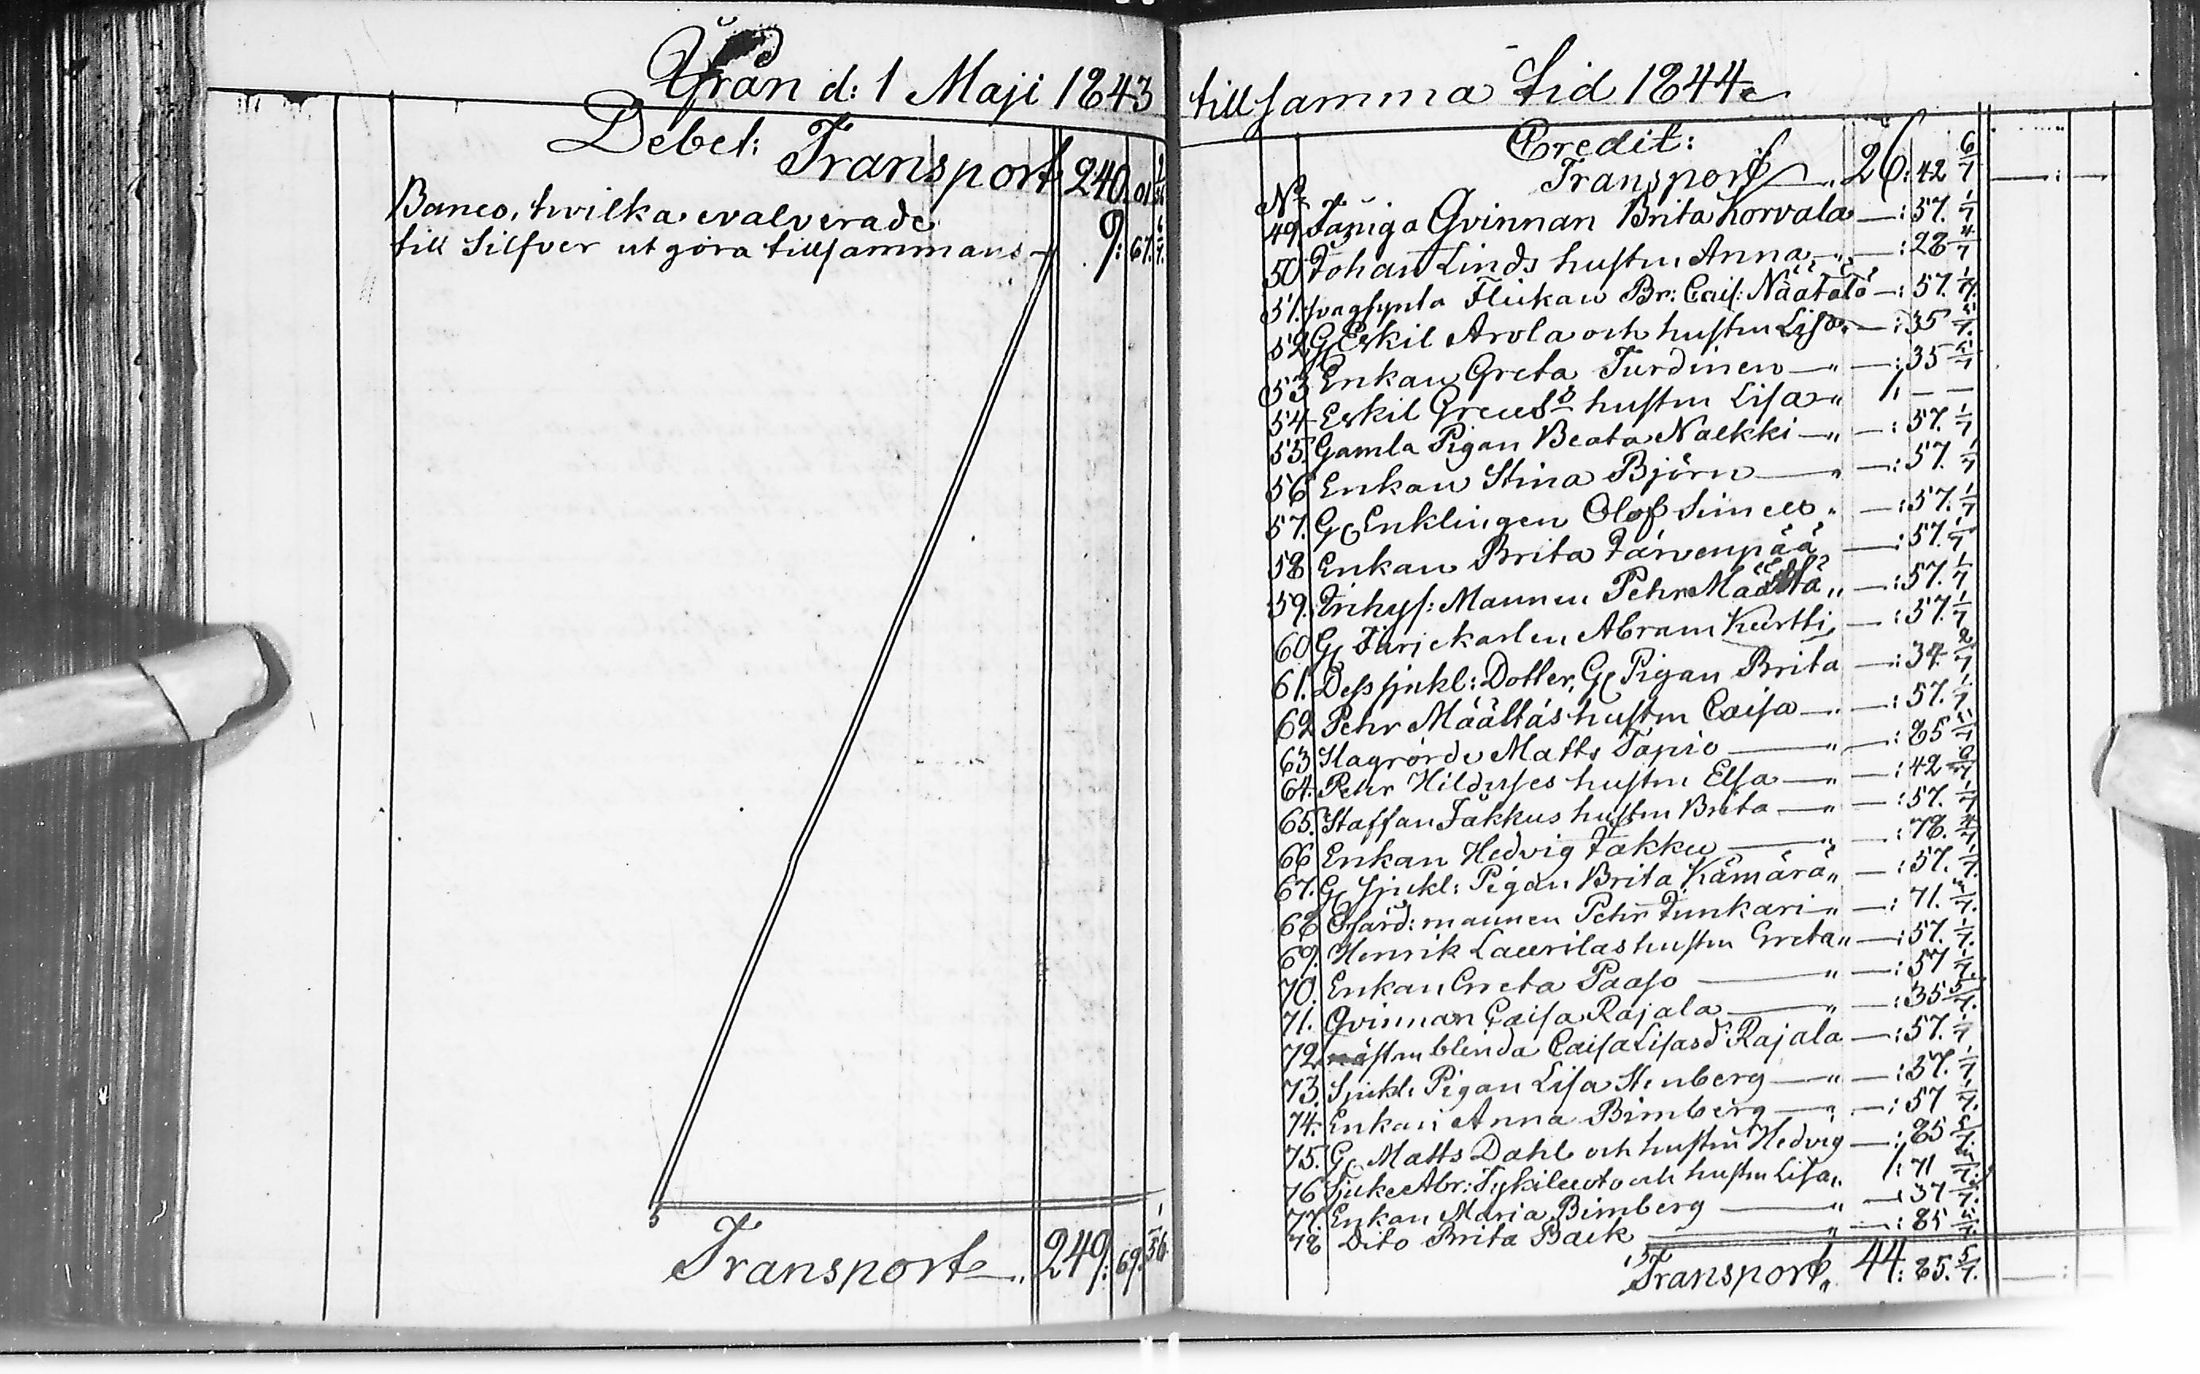 Från d: 1 Maji 1843
Debet:
Transport 240. 01
Banco, hvilka evalverade
till Silfver utgöra tillsammans 9: 67. 6/7.
Transport 249: 69. 1/56.
till samma tid 1844
Credit:
Transport 26: 42 6/7
No
49. Qvinnan Brita Korvala — : 57. 1/7
50 Johan Linds hustru Anna — : 28 4/7
51. svagsynta Flickan Br: Caij: Näätälö — : 57. 1/7.
52 G Eskil Arola och hustru Lisa — : 35 5/7.
53 Enkan Greta Turdinen — : 35 5/7
54 Eskil hustru Lisa 1, — —
55. Gamla Pigan Beata Nalkki — : 57. 1/7
56 Enkan Stina Björn — : 57. 1/7
57. G Enklingen Olof Simell — : 57. 1/7
58 Enkan Brita Järvenpää — : 57. 1/7
59. Mannen Pehr Määttä — : 57. 1/7
60 G Abram Kurtti — : 57. 1/7
61. Dess sjukl: Dotter, G Pigan Brita — : 34 2/7
62 Pehr Määttäs hustru Caisa — : 57. 1/7
63 Matts Tapio — : 85 5/7
64. Pehr hustru Elsa — : 42 6/7
65. Staffan Jakkus hustru Brita — : 57. 1/7
66 Enkan Hedvig Jakku — : 78. 4/7
67. G Sjukl: Pigan Brita Kämärä — : 57. 1/7.
68 mannen Pehr Junkari — : 71. 3/7.
69. Henrik Laurilas hustru Greta — : 57. 1/7.
70. Enkan Greta Paaso — : 57 1/7
71. Qvinnan Caisa Rajala — : 35 5/7.
72 nästan blinda Caisa Lisasd: Rajala — : 57. 1/7
73. Sjukl: Pigan Lisa Stenberg — : 57. 1/7
74. Enkan Anna Bimberg — : 57 1/7.
75. G Matts Dahl och hustru Hedvig — : 85 5/7.
76 Sjuke Abr: Tykiluoto och hustru Lisa 1: 71 3/7.
77. Enkan Maria Bimberg — : 57 1/7.
78 Dito Brita Back — : 85 5/7.
Transport 44: 85. 5/7.